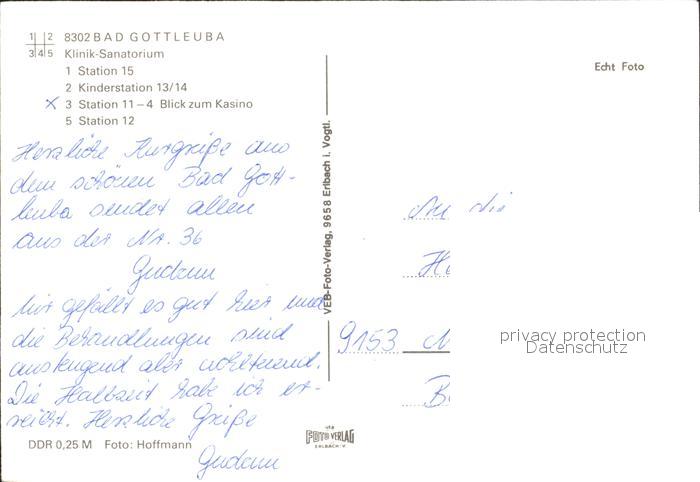 1 2 8302 BAD GOTTLEUBA
3 4 5 Klinik-Sanatorium
1 Station 15
2 Kinderstation 13/14
x 3 Station 11 – 4 Blick zum Kasino
5 Station 12
Echt Foto
Herzliche Kurgrüße aus
dem schönen Bad Gott-
leuba sendet allen
aus der Nr. 36
Gudrun
Mir gefällt es gut hier und
die Behandlungen sind
anstrengend aber wohltuend.
Die Halbzeit habe ich er-
reicht. Herzliche Grüße
Gudrun
VEB-Foto-Verlag, 9658 Erlbach i. Vogtl.
An die
9153
privacy protection
Datenschutz
DDR 0,25 M Foto: Hoffmann
FOTO VERLAG
ERLBACH/V.